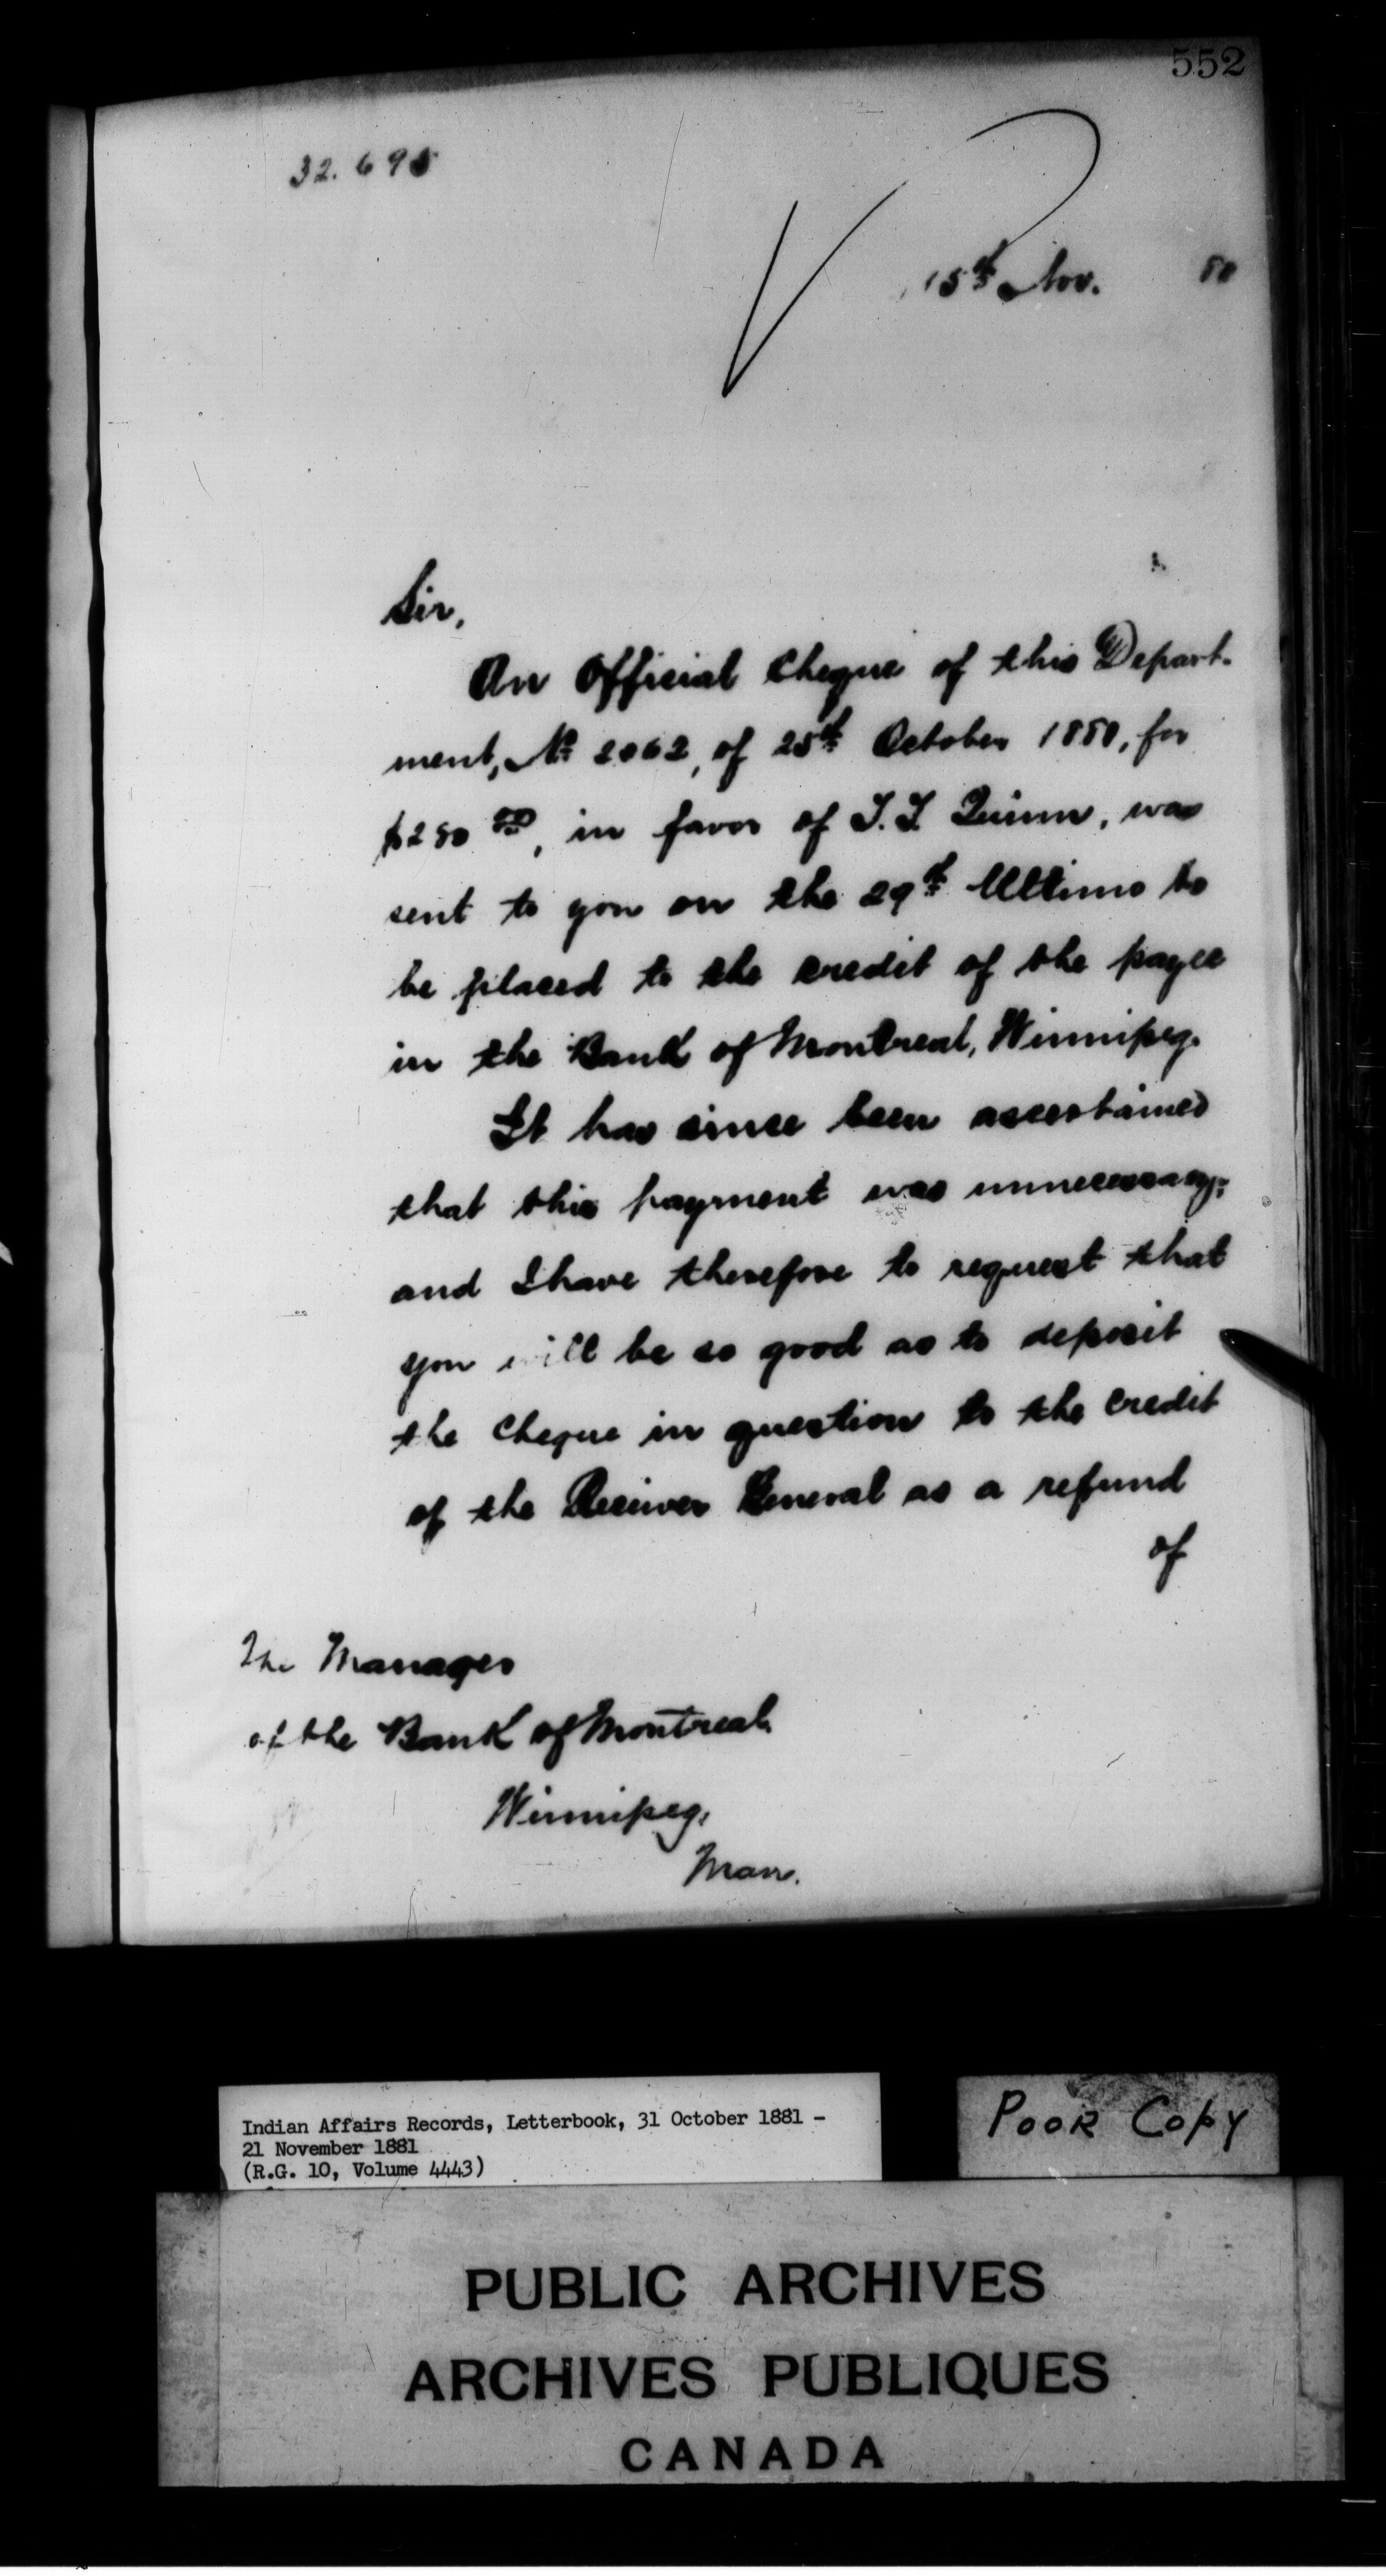 552
32.695
15th Nov. 80
Sir,
An Official Cheque of this Depart-
ment, No 2062, of 25th October 1880, for
$250 00, in favor of J. J. Quinn, was
sent to you on the 29th Ultimo to
be placed to the credit of the payee
in the Bank of Montreal, Winnipeg.
It has since been ascertained
that this payment was unnecessary;
and I have therefore to request that
you will be so good as to deposit
the Cheque in question to the credit
of the Receiver General as a refund
of
The Manager
of the Bank of Montreal,
Winnipeg,
Man.
Indian Affairs Records, Letterbook, 31 October 1881 –
21 November 1881
(R.G. 10, Volume 4443)
POOR COPY
PUBLIC ARCHIVES
ARCHIVES PUBLIQUES
CANADA